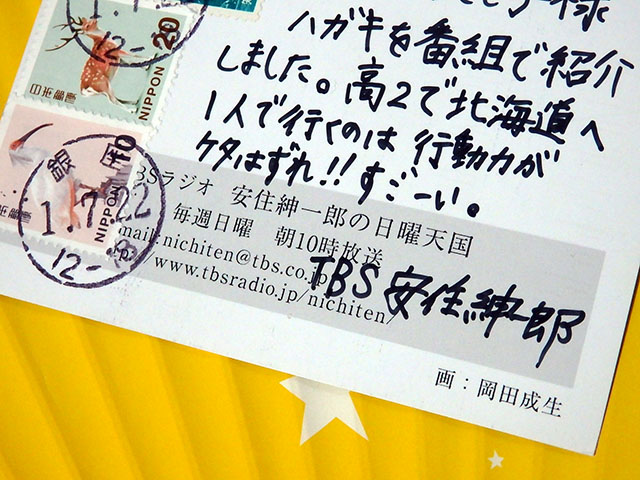 様
ハガキを番組で紹介
しました。高2で北海道へ
1人で行くのは行動力が
ケタはずれ!!すごーい。
BSラジオ 安住紳一郎の日曜天国
毎週日曜 朝10時放送
mail: nichiten@tbs.co.jp
www.tbsradio.jp/nichiten/
TBS 安住紳一郎
画:岡田成生
20
日本郵便
NIPPON
10
日本郵便
NIPPON
銀
1.7.22
12-
12-